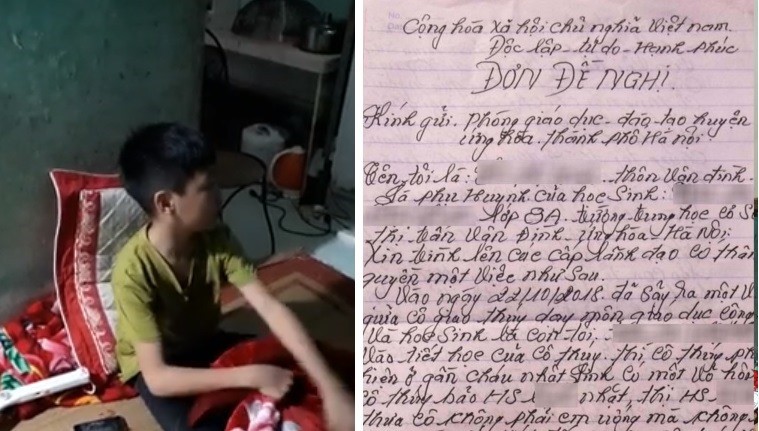 Cộng hòa xã hội chủ nghĩa Việt nam
Độc lập - tự do - Hạnh phúc
ĐƠN ĐỀ NGHỊ
Kính gửi - phòng giáo dục - đào tạo huyện
ứng hòa - thành phố Hà Nội
Tên tôi là: thôn Vận đình -
Là phụ Huynh của học Sinh:
lớp 8A - trường trung học cơ Sở
thị trấn Vân Đình, ứng hòa - Hà Nội
Xin trình lên các cấp lãnh đạo có thẩm
quyền một việc như Sau.
Vào ngày 22/10/2018 đã Sẩy ra một v
giữa cô giáo thủy dạy môn giáo dục công
và học Sinh là con tôi:
Vào tiết học của cô thủy thì cô thủy ph
hiện ở gần cháu nhất Sinh có một vỏ hộ
cô thủy bảo HS nhất, thì HS
thưa cô không phải em uống mà không